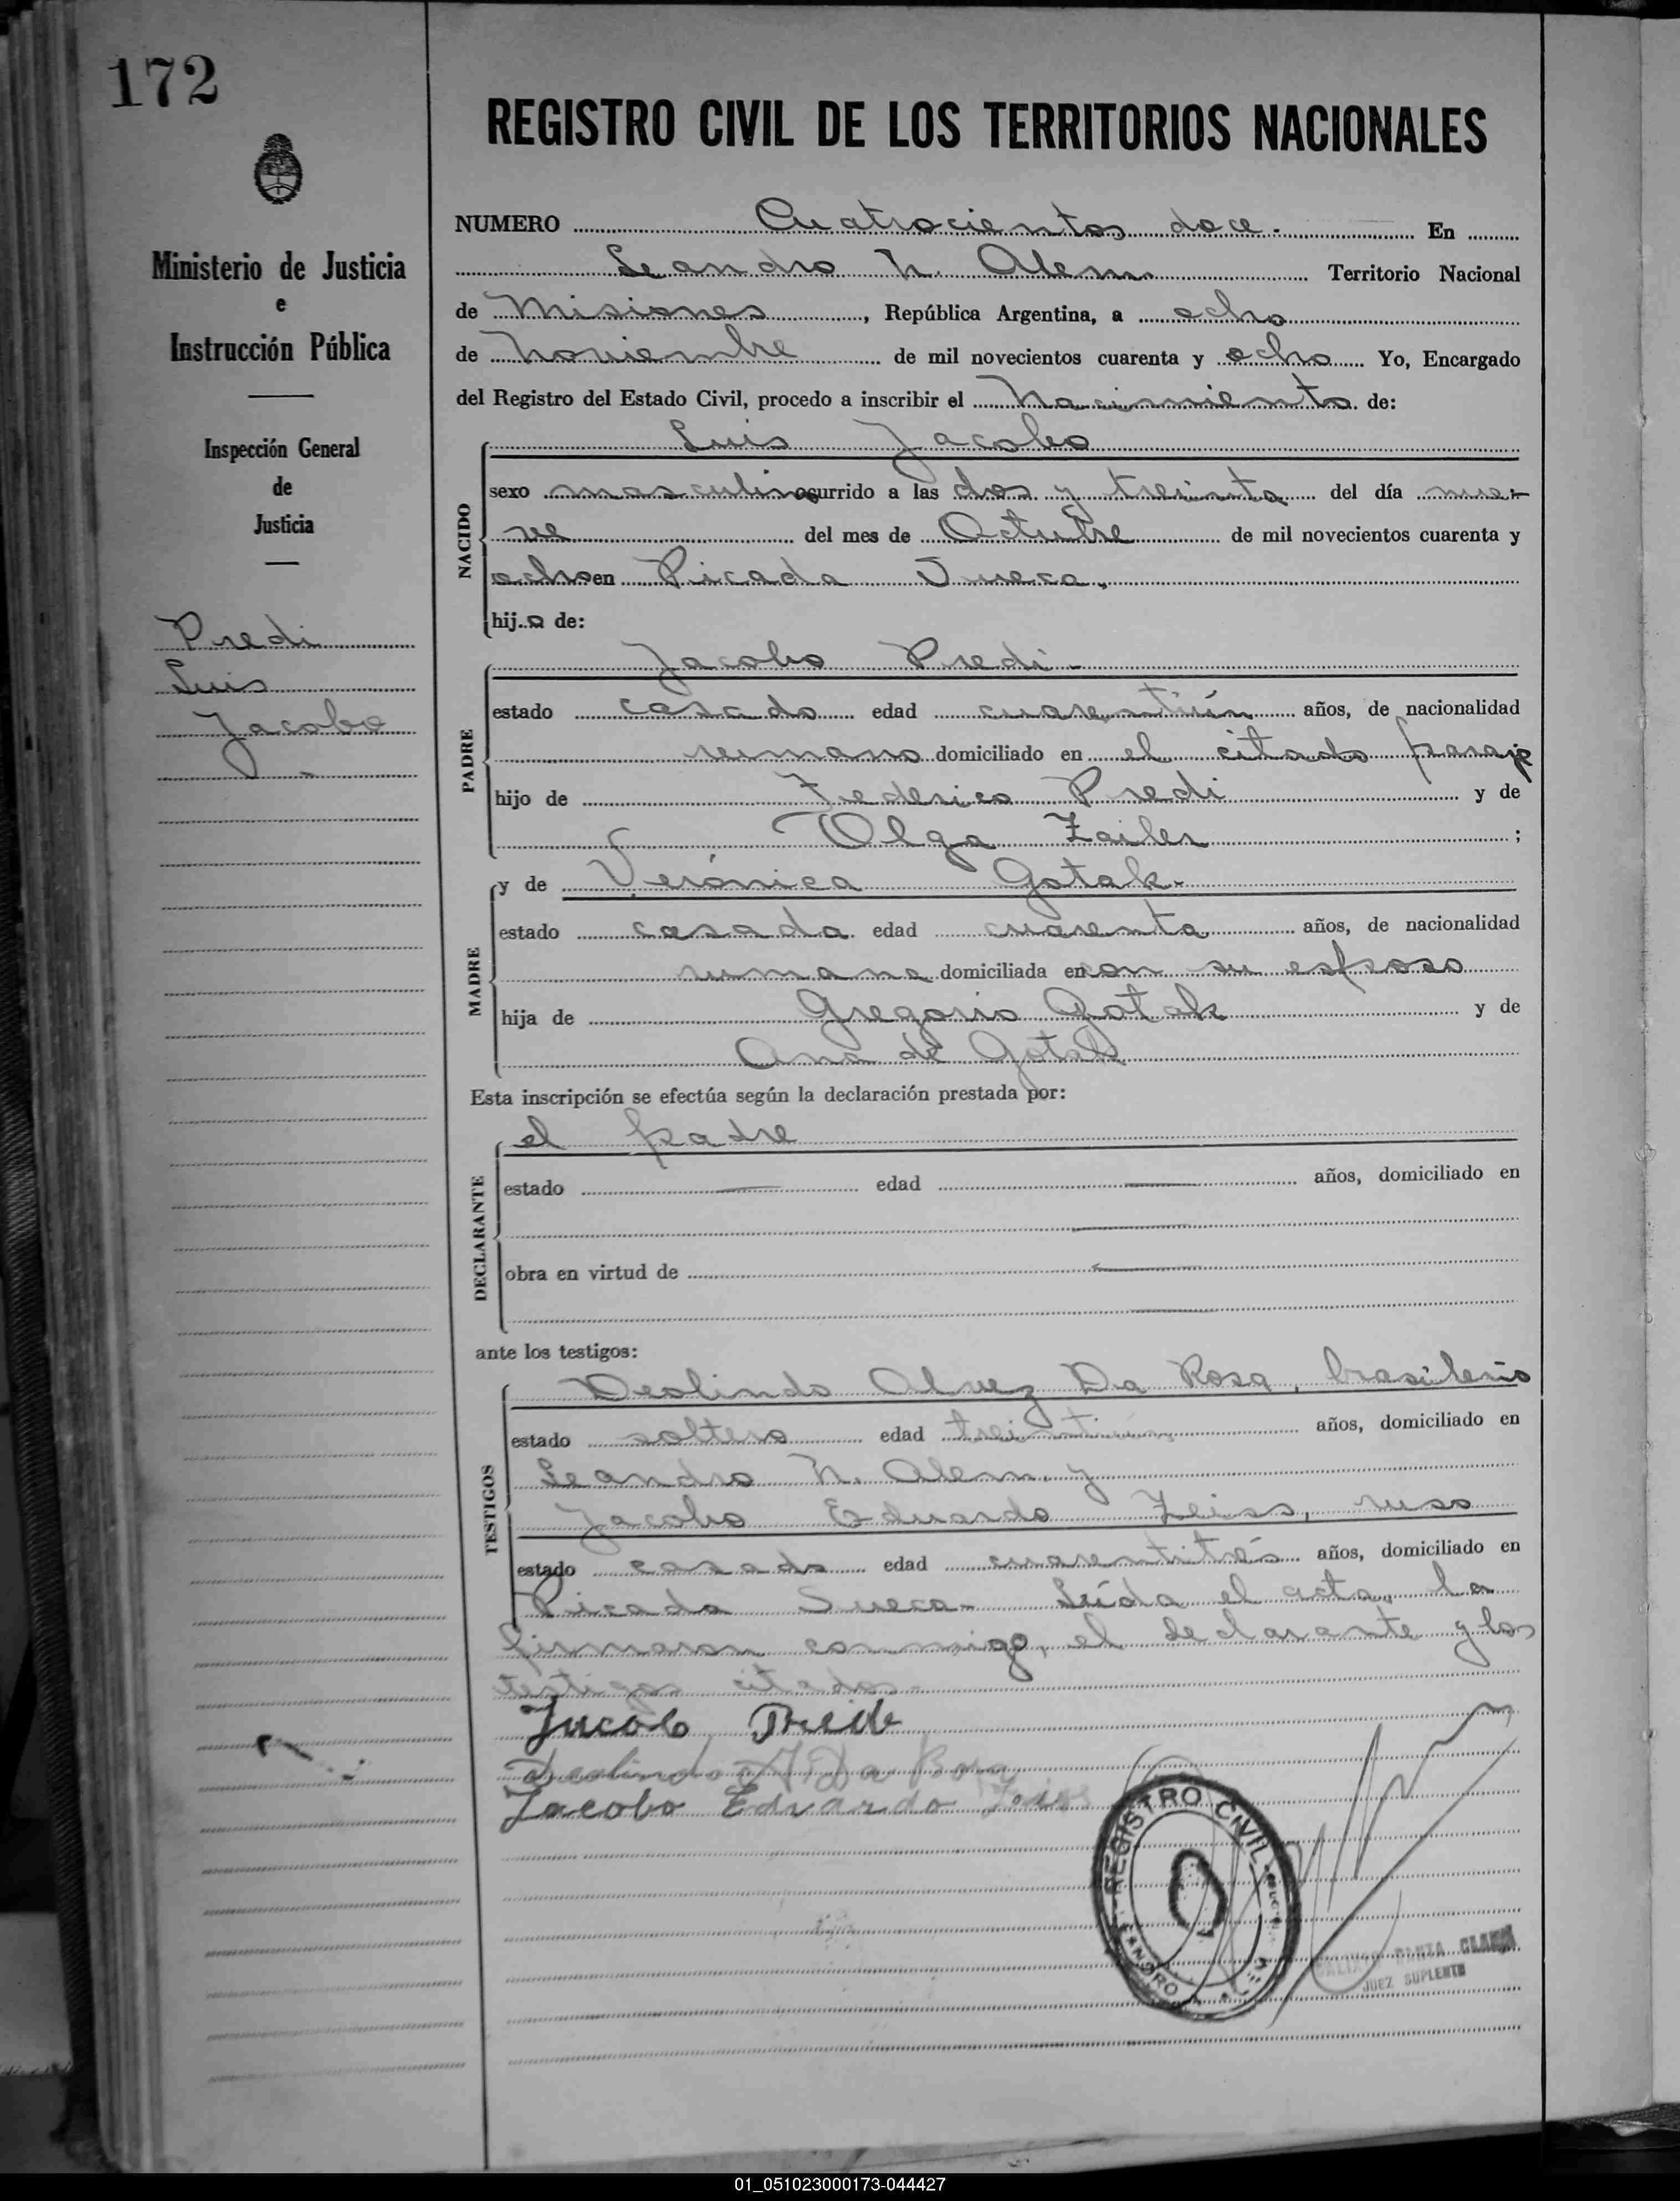 172
REGISTRO CIVIL DE LOS TERRITORIOS NACIONALES
Ministerio de Justicia
e
Instrucción Pública
Inspección General
de
Justicia
Predi
Luis
Jacobo
NUMERO Cuatrocientos doce. En
Leandro N. Alem Territorio Nacional
de Misiones, República Argentina, a ocho
de Noviembre de mil novecientos cuarenta y ocho Yo, Encargado
del Registro del Estado Civil, procedo a inscribir el Nacimiento de:
NACIDO
Luis Jacobo
sexo masculino ocurrido a las dos y treinta del día nue-
ve del mes de Octubre de mil novecientos cuarenta y
ocho en Picada Sueca,
hijo de:
PADRE
Jacobo Predi-
estado casado edad cuarentiún años, de nacionalidad
rumano domiciliado en el citado paraje
hijo de Federico Predi y de
Olga Zailer ;
MADRE
y de Verónica Gotak-
estado casada edad cuarenta años, de nacionalidad
rumana domiciliada en con su esposo
hija de Gregorio Gotak y de
Ana de Gotak
Esta inscripción se efectúa según la declaración prestada por:
DECLARANTE
el padre
estado edad años, domiciliado en
obra en virtud de
ante los testigos:
TESTIGOS
Deolindo Alvez Da Rosa, brasileño
estado soltero edad treintiún años, domiciliado en
Leandro N. Alem y
Jacobo Eduardo Zeiss, ruso
estado casado edad cuarentitrés años, domiciliado en
Picada Sueca- Leída el acta, la
firmaron conmigo, el declarante y los
testigos citados-
Jacob
Deolindo A Da Rosa
Jacobo Eduardo Zeiss
REGISTRO CIVIL
JUEZ SUPLENTE
01_051023000173-044427